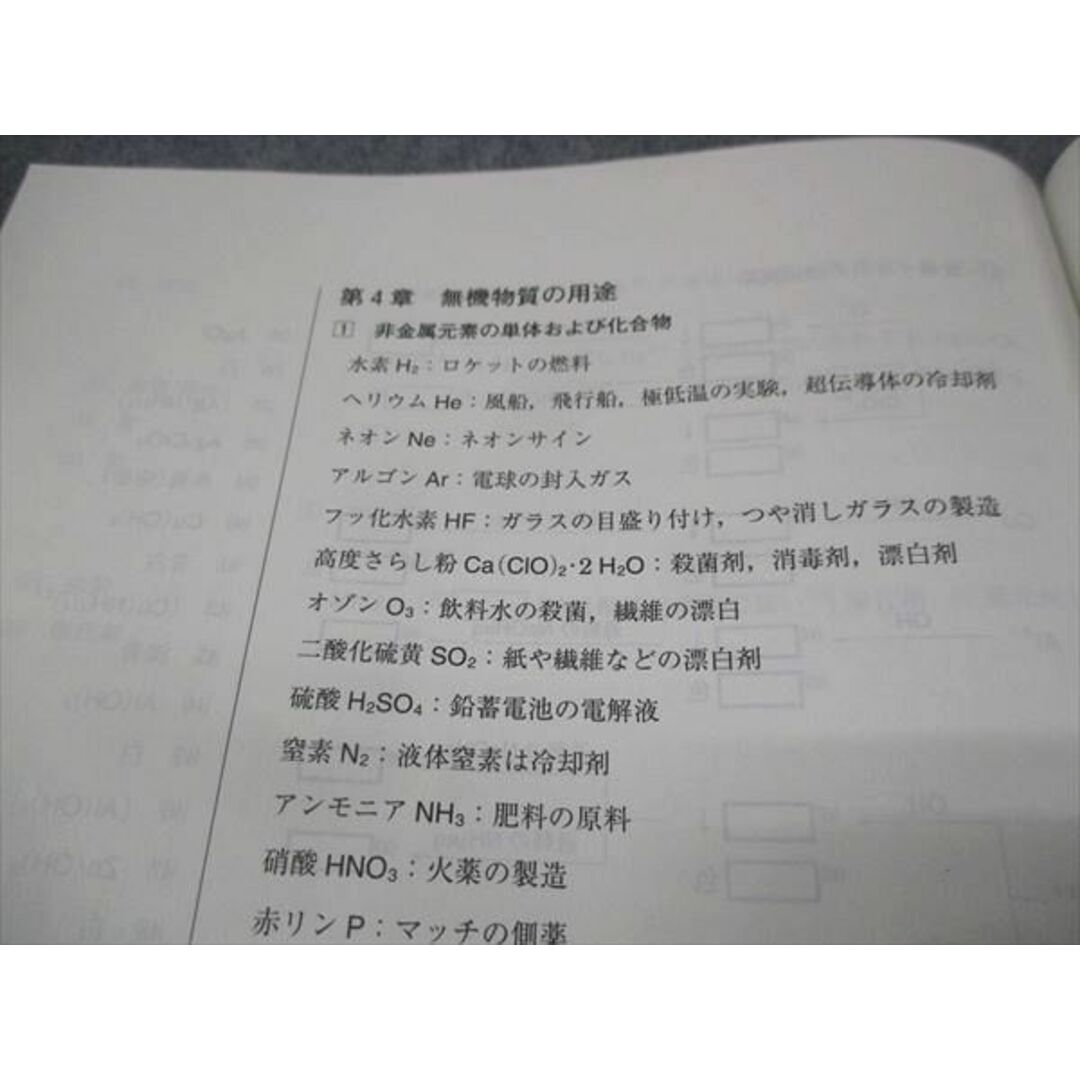 第4章 無機物質の用途
1 非金属元素の単体および化合物
水素 H₂：ロケットの燃料
ヘリウム He：風船，飛行船，極低温の実験，超伝導体の冷却剤
ネオン Ne：ネオンサイン
アルゴン Ar：電球の封入ガス
フッ化水素 HF：ガラスの目盛り付け，つや消しガラスの製造
高度さらし粉 Ca(ClO)₂・2 H₂O：殺菌剤，消毒剤，漂白剤
オゾン O₃：飲料水の殺菌，繊維の漂白
二酸化硫黄 SO₂：紙や繊維などの漂白剤
硫酸 H₂SO₄：鉛蓄電池の電解液
窒素 N₂：液体窒素は冷却剤
アンモニア NH₃：肥料の原料
硝酸 HNO₃：火薬の製造
赤リン P：マッチの側薬